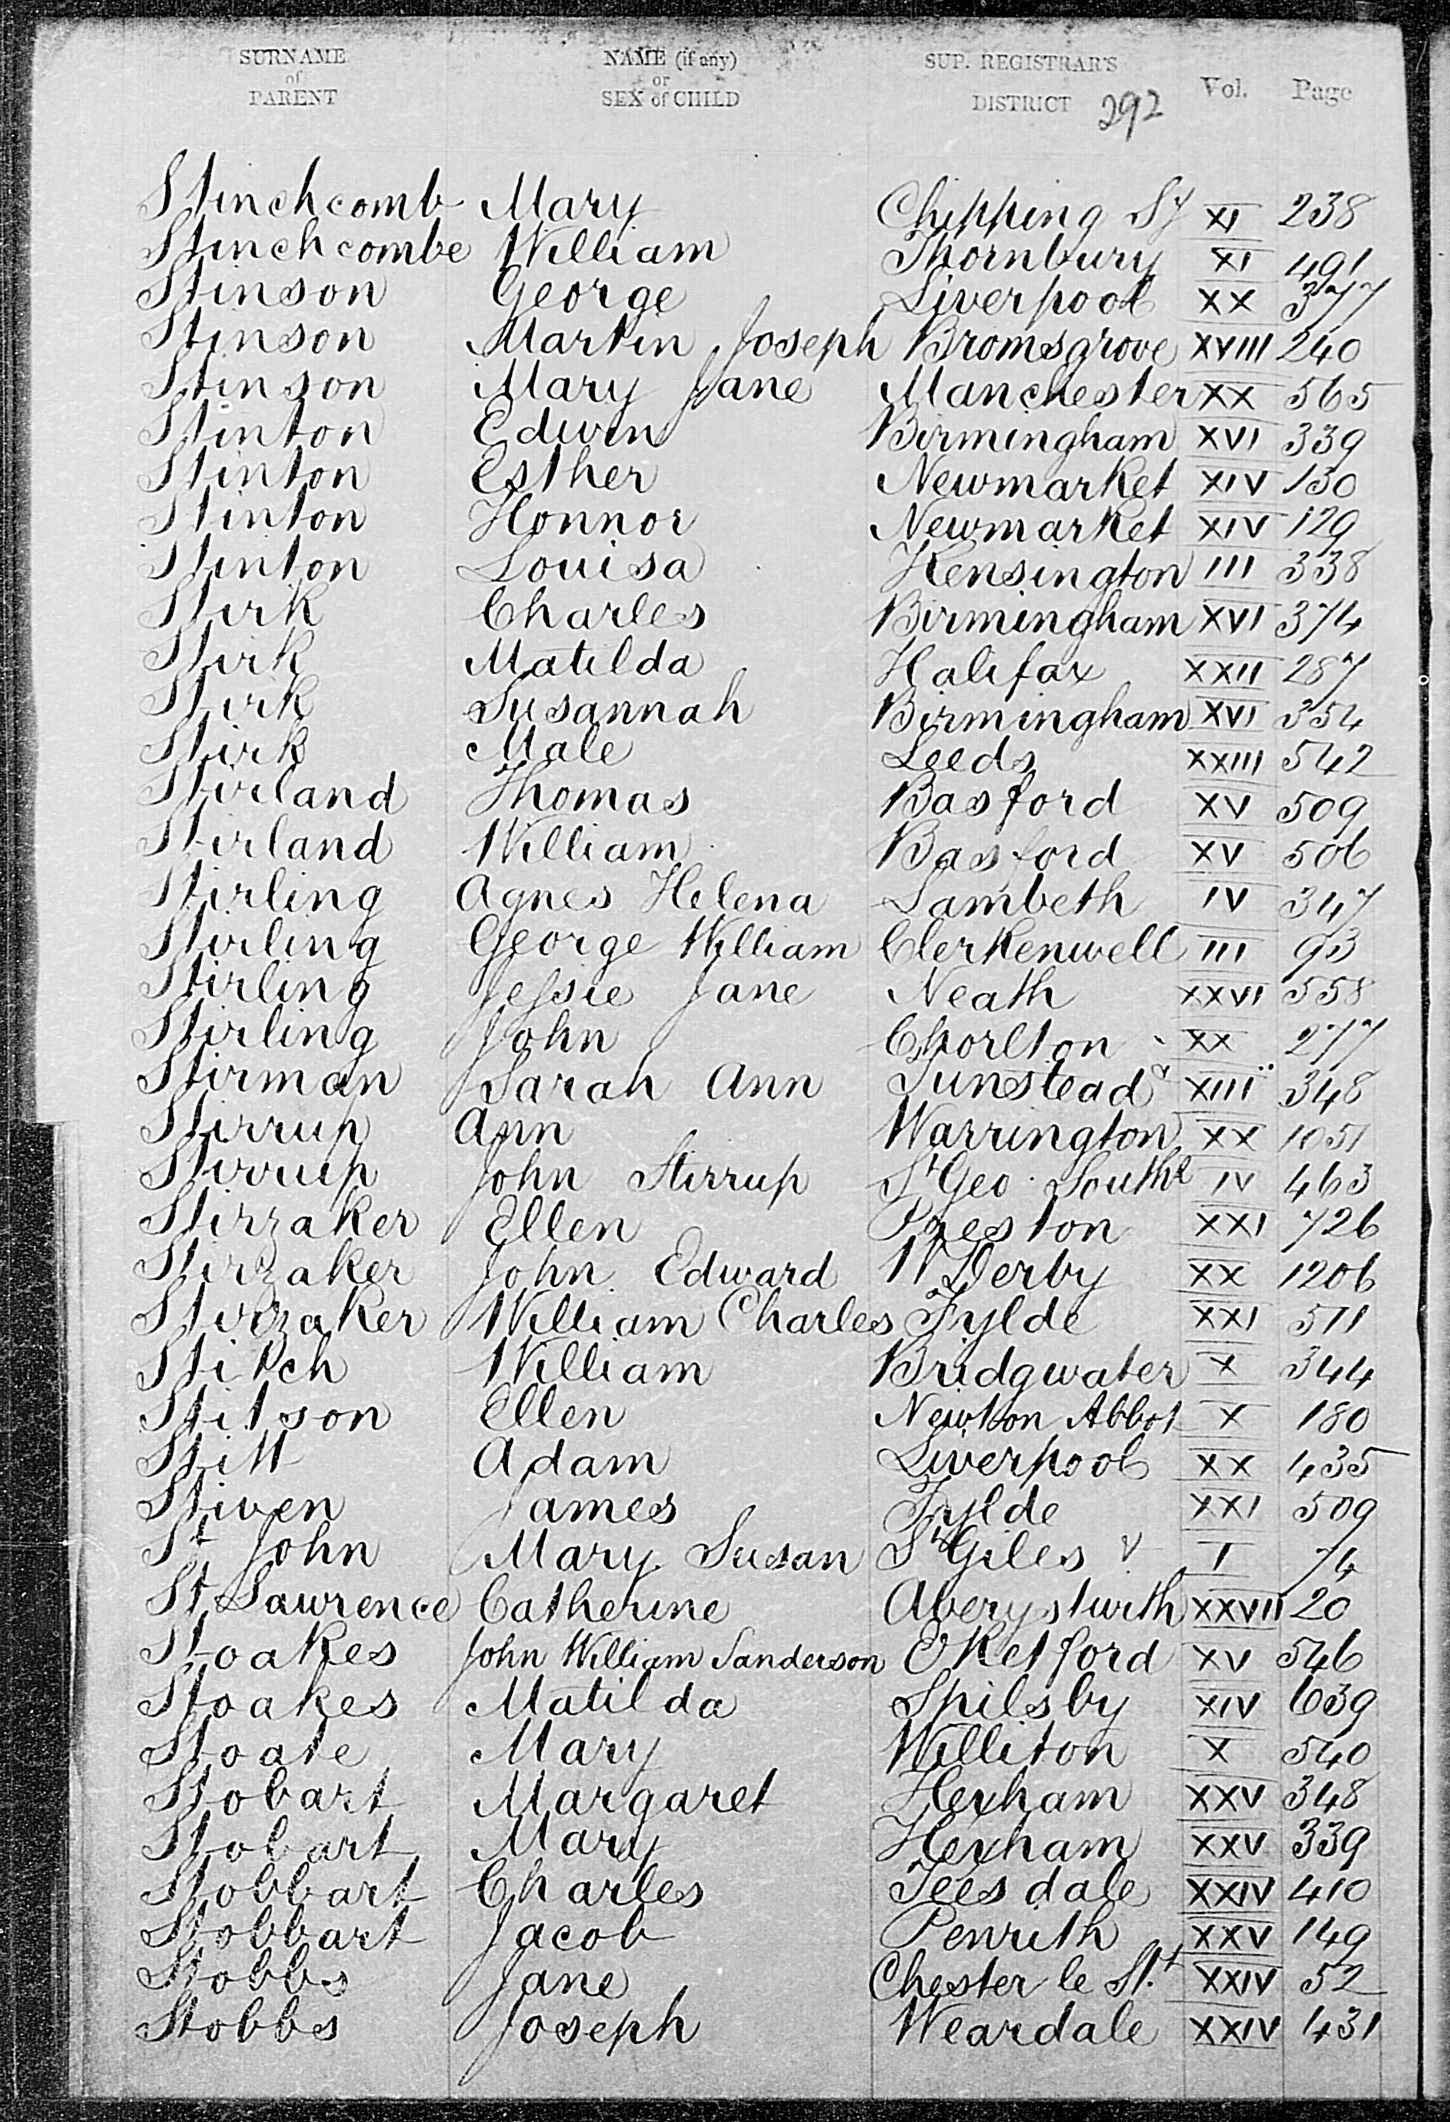 SURNAME of PARENT NAME (if any) or SEX of CHILD SUP. REGISTRAR'S DISTRICT 292 Vol. Page
Stinchcomb Mary Chipping Sy XI 238
Stinchcombe William Thornbury XI 491
Stinson George Liverpool XX 377
Stinson Martin Joseph Bromsgrove XVIII 240
Stinson Mary Jane Manchester XX 565
Stinton Edwin Birmingham XVI 339
Stinton Esther Newmarket XIV 130
Stinton Honnor Newmarket XIV 129
Stinton Louisa Kensington III 338
Stirk Charles Birmingham XVI 374
Stirk Matilda Halifax XXII 287
Stirk Susannah Birmingham XVI 354
Stirk Male Leeds XXIII 542
Stirland Thomas Basford XV 509
Stirland William Basford XV 506
Stirling Agnes Helena Lambeth IV 347
Stirling George William Clerkenwell III 93
Stirling Jessie Jane Neath XXVI 558
Stirling John Chorlton XX 277
Stirman Sarah Ann Tunstead XIII 348
Stirrup Ann Warrington XX 1051
Stirrup John Stirrup St Geo. South IV 463
Stirzaker Ellen Preston XXI 726
Stirzaker John Edward W Derby XX 1206
Stirzaker William Charles Fylde XXI 511
Stitch William Bridgwater X 344
Stitson Ellen Newton Abbot X 180
Stitt Adam Liverpool XX 435
Stiven James Fylde XXI 509
St John Mary Susan St Giles I 74
St Lawrence Catherine Aberystwith XXVII 20
Stoakes John William Sanderson E Retford XV 546
Stoakes Matilda Spilsby XIV 639
Stoate Mary Williton X 540
Stobart Margaret Hexham XXV 348
Stobart Mary Hexham XXV 339
Stobbart Charles Teesdale XXIV 410
Stobbart Jacob Penrith XXV 149
Stobbs Jane Chester le St. XXIV 52
Stobbs Joseph Weardale XXIV 431